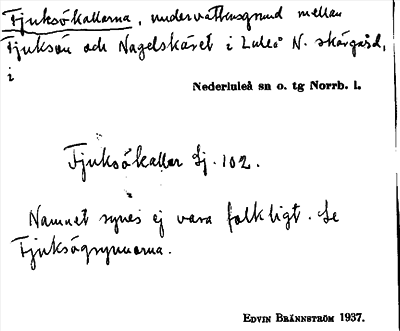 Fjuksökallarna, undervattensgrund mellan
Fjuksön och Nagelskäret i Luleå N. skärgård,
i
Nederluleå sn o. tg Norrb. l.
Fjuksökallar Sj. 102.
Namnet synes ej vara folkligt. Se
Fjuksögrynnorna.
Edvin Brännström 1937.